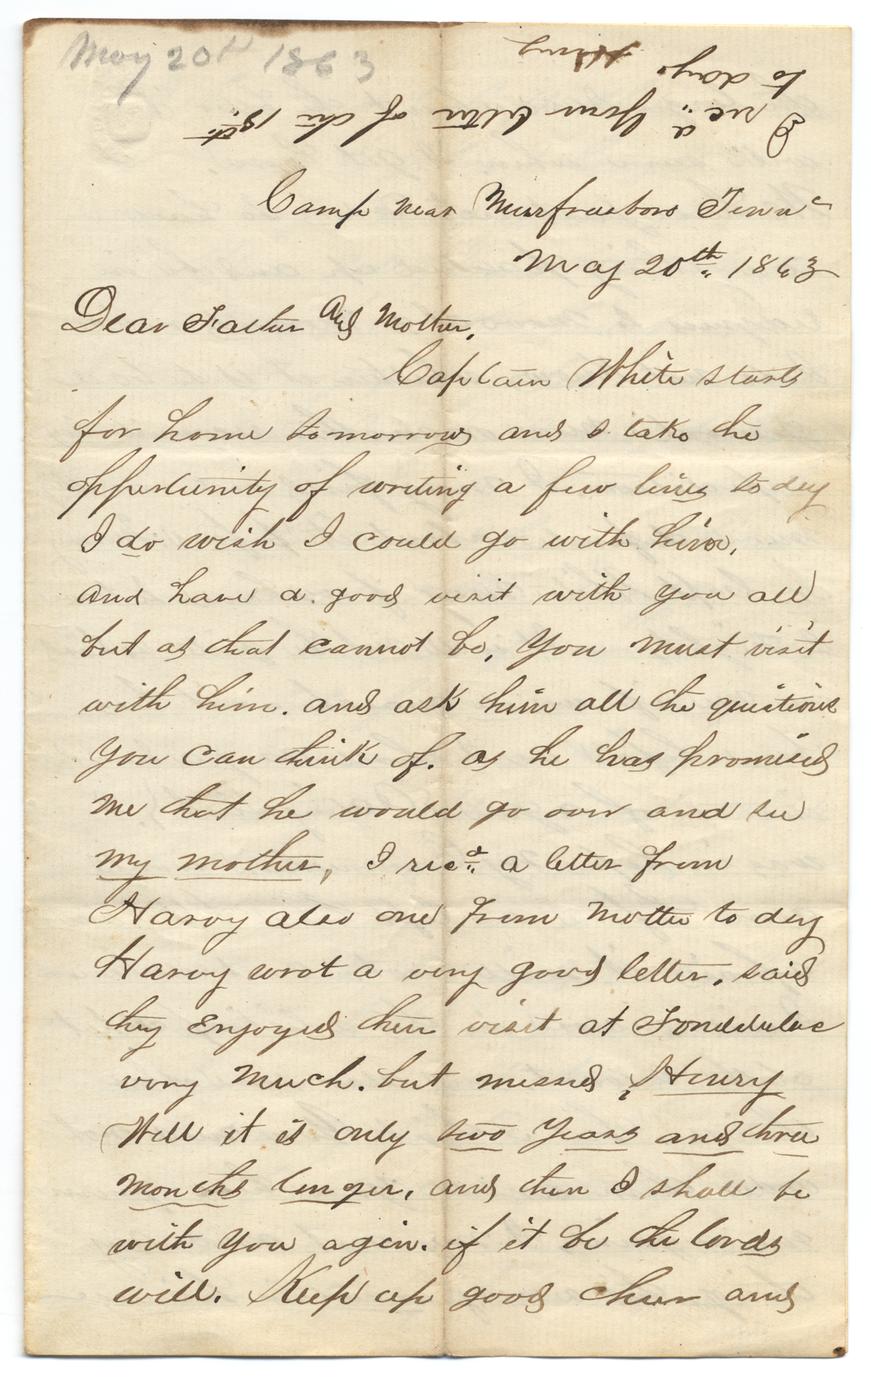 May 20th 1863
I rec.d Your letter of the 13th
to day. Henry
Camp near Murfreesboro Tenn
May 20th 1863
Dear Father And Mother,
Captain White starts
for home tomorrow and I take the
oppertunity of writing a few lines to day
I do wish I could go with him,
and have a good visit with you all
but as that cannot be, You must visit
with him. and ask him all the questions
You can think of. as he has promised
me that he would go over and see
my mother, I recd a letter from
Harvy also one from Mother to day
Harvy wrot a very good letter, said
they Enjoyed their visit at Fonddulac
very much. but missed Henry
Well it is only two Years and three
months longer, and then I shall be
with you agin. if it be the lords
will. Keep up good cheer and